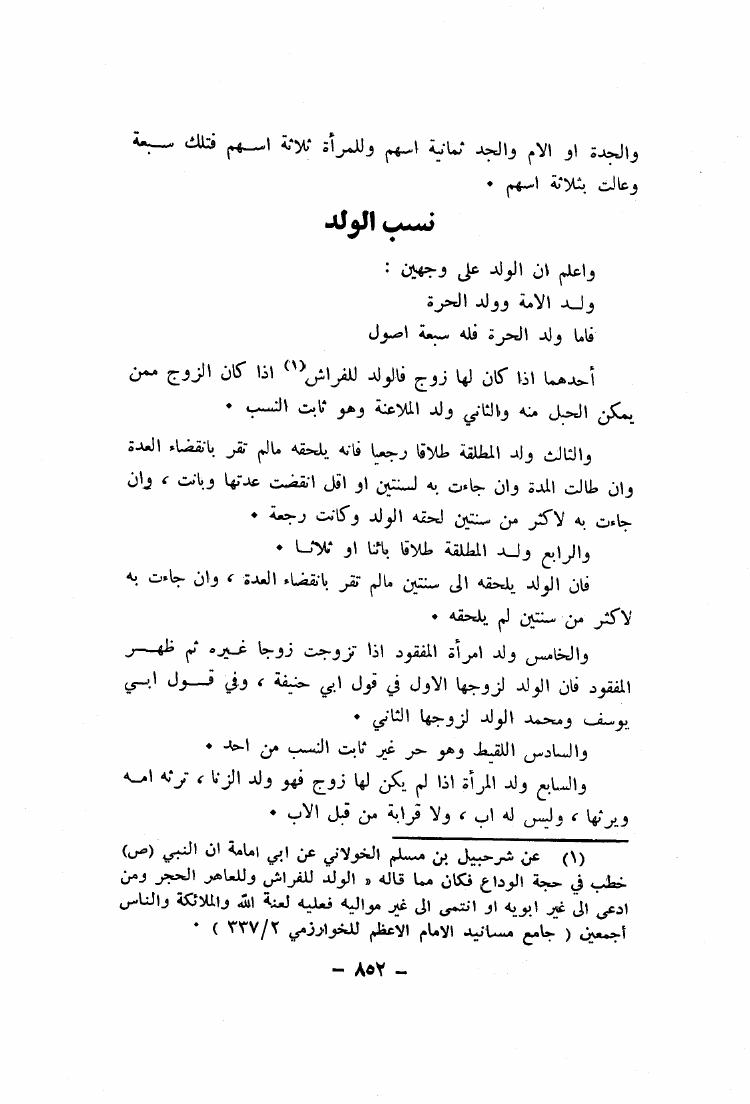 والجدة او الام والجد ثمانية اسهم وللمرأة ثلاثة اسـهم فتلك سـبعة
وعالت بثلاثة اسهم ٠
نسب الولد
واعلم ان الولد على وجهين :
ولـد الامة وولد الحرة
فاما ولد الحرة فله سبعة اصول
أحدهما اذا كان لها زوج فالولد للفراش(١) اذا كان الزوج ممن
يمكن الحبل منه والثاني ولد الملاعنة وهو ثابت النسب ٠
والثالث ولد المطلقة طلاقا رجعيا فانه يلحقه مالم تقر بانقضاء العدة
وان طالت المدة وان جاءت به لسنتين او اقل انقضت عدتها وبانت ، وان
جاءت به لاكثر من سنتين لحقه الولد وكانت رجعة ٠
والرابع ولـد المطلقة طلاقا بائنا او ثلاثـا ٠
فان الولد يلحقه الى سنتين مالم تقر بانقضاء العدة ، وان جاءت به
لاكثر من سنتين لم يلحقه ٠
والخامس ولد امرأة المفقود اذا تزوجت زوجا غـيره ثم ظهـــر
المفقود فان الولد لزوجها الاول في قول ابي حنيفة ، وفي قــول ابـي
يوسف ومحمد الولد لزوجها الثاني ٠
والسادس اللقيط وهو حر غير ثابت النسب من احد ٠
والسابع ولد المرأة اذا لم يكن لها زوج فهو ولد الزنا ، ترثه امـه
ويرثها ، وليس له اب ، ولا قرابة من قبل الاب ٠
(١) عن شرحبيل بن مسلم الخولاني عن ابي امامة ان النبي (ص)
خطب في حجة الوداع فكان مما قاله « الولد للفراش وللعاهر الحجر ومن
ادعى الى غير ابويه او انتمى الى غير مواليه فعليه لعنة الله والملائكة والناس
أجمعين ( جامع مسانيد الامام الاعظم للخوارزمي ٣٣٧/٢ ) ٠
– ٨٥٢ –